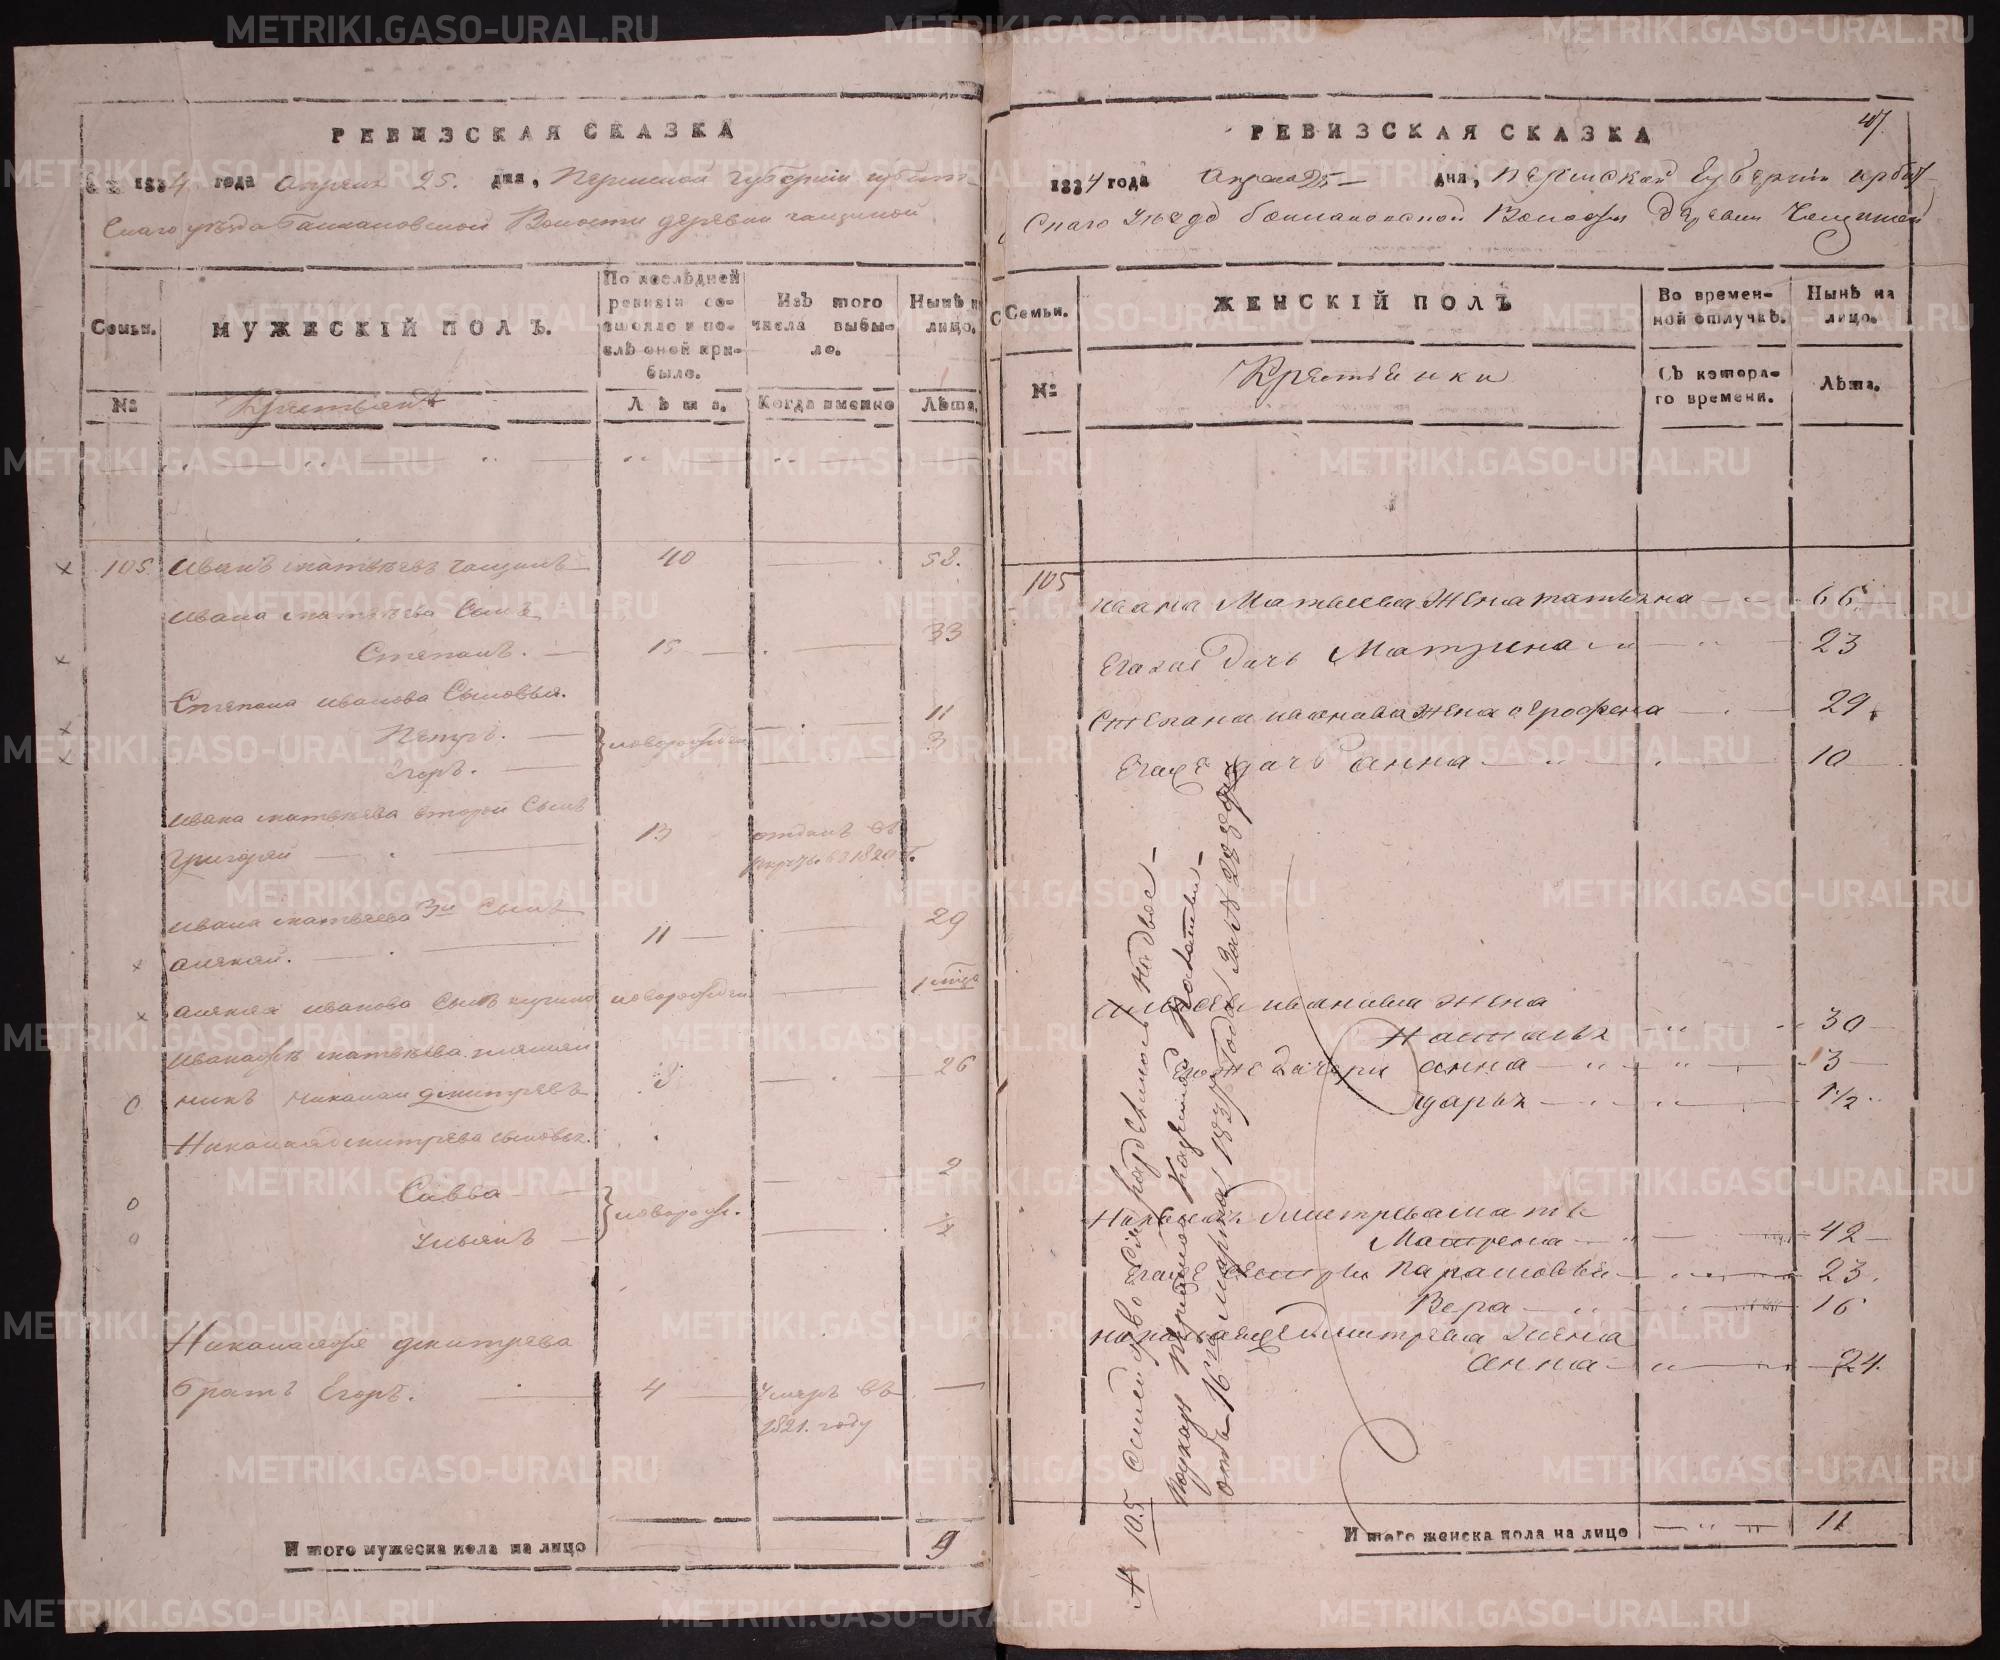 РЕВИЗСКАЯ СКАЗКА
1834 года апреля 25. дня, Пермской губернии ирбит-
скаго уезда Баклановской Волости деревни чащиной
Семьи.
МУЖЕСКІЙ ПОЛЪ.
По послѣдней ревизіи состояло и послѣ оной прибыло.
Изъ того числа выбыло.
Нынѣ на лицо.
№
Крестьянъ
Лѣта.
Когда именно
Лѣта.
105. Иванъ матвѣевъ чащинъ 40 52.
Ивана матвѣева Сынъ
Степанъ. 15 33
Степана иванова Сыновья.
Петръ. новорожден 11
Егоръ. 3
Ивана матвѣева второй Сынъ
Григорей 13 отданъ въ
рекруты въ 1820 г.
Ивана матвѣева 3й Сынъ
алексей. 11 29
алексея иванова Сынъ новорожден.
Ивана матвѣева племян
никъ Николаи дмитревъ 8 26
Николая дмитрева сыновья.
Савва 2
новорож.
Ульянъ 1/2
Николая дмитрева
братъ Егоръ. 4 умеръ въ
1821. году
Итого мужеска пола на лицо 9
47.
РЕВИЗСКАЯ СКАЗКА
1834 года Апреля 25 дня, Пермской Губернии ирбит
скаго Уезда баклановской Волости деревни Чащиной
Семьи.
ЖЕНСКІЙ ПОЛЪ
Во временной отлучкѣ.
Нынѣ на лицо.
№
Крестьянки
Съ котораго времени.
Лѣта.
105
ивана Матвеева Жена татьяна 66
Егоже дочь Матрина 23
Степана иванова жена ерофена 29
Егоже дочь анна 10
Алексея иванова жена
Наталья 30
Егоже дочери анна 3
дарья 1 1/2
Николая дмитрева мать
Матрена 42
Егоже сестры Парасковья 23.
Вера 16
николая дмитрева жена
анна 24.
№ 105 Семейство раздѣлилось на двое
по указу Пермской Казенной Палаты
отъ 16го марта 1837 Года За №
Итого женска пола на лицо 11
METRIKI.GASO-URAL.RU